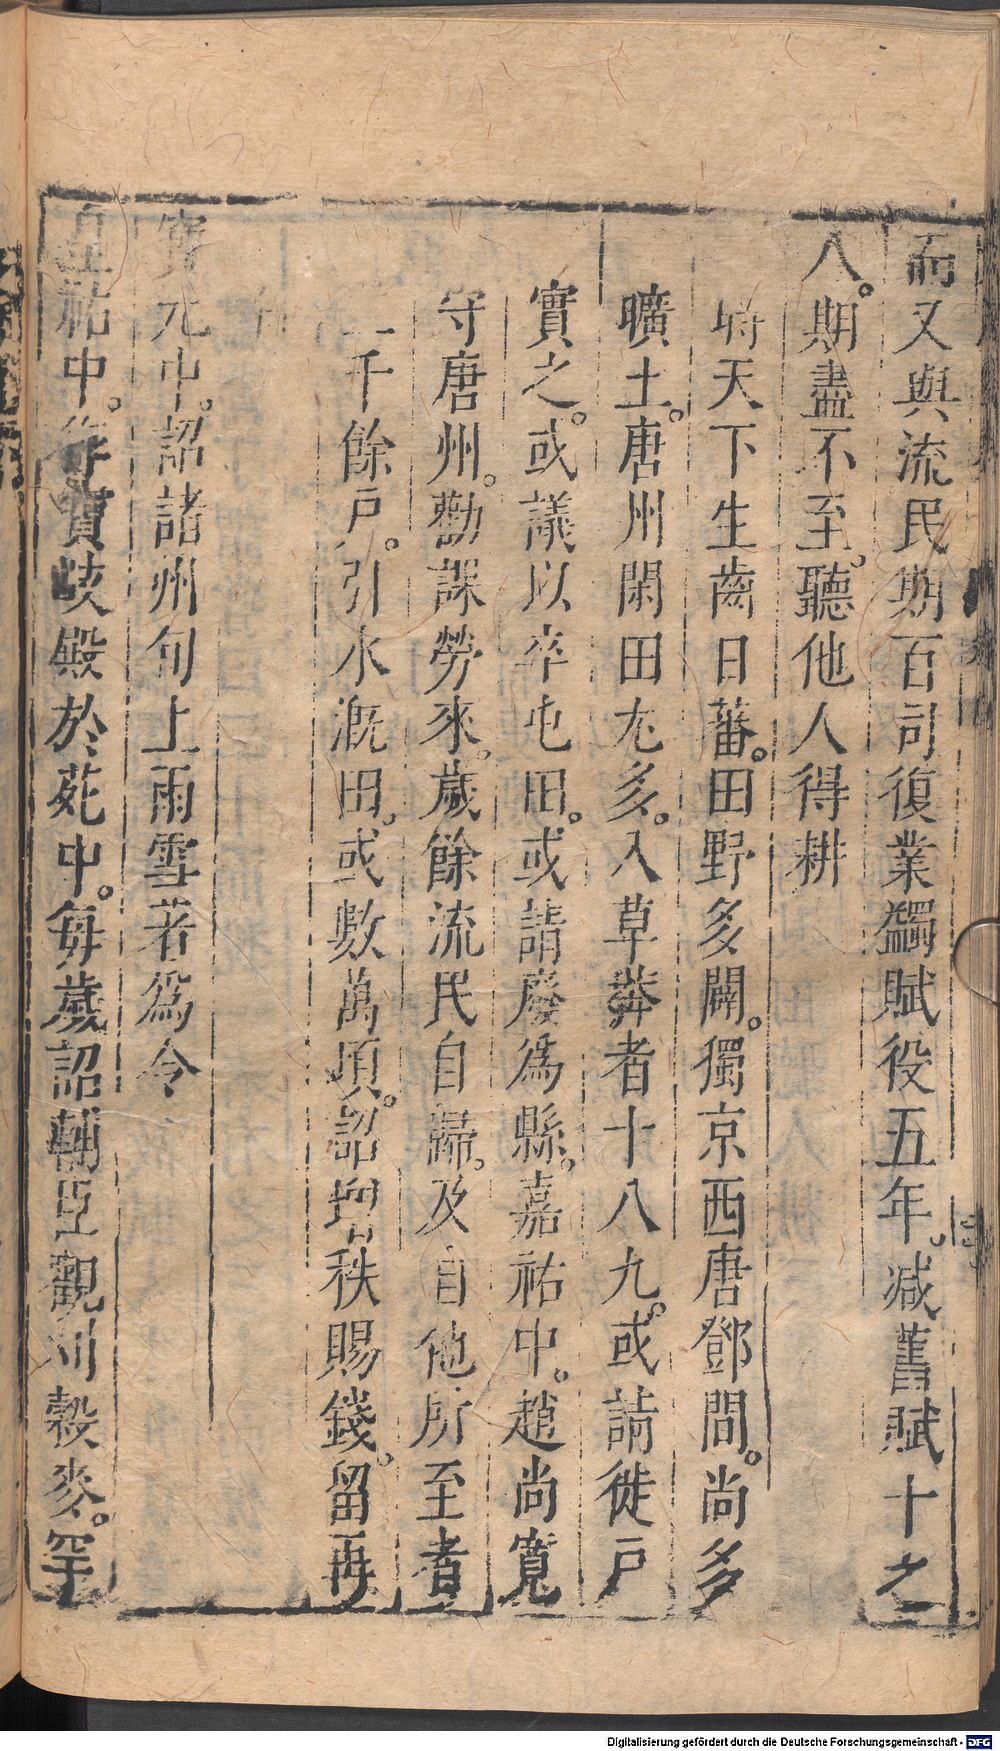 而又與流民期百司復業蠲賦役五年。減舊賦十之
八。期盡不至。聽他人得耕
時天下生齒日蕃。田野多闢。獨京西唐鄧間。尚多
曠土。唐州閑田尤多。入草莽者十八九。或請徙戶
實之。或議以卒屯田。或請廢爲縣。嘉祐中。趙尚寬
守唐州。勸課勞來。歲餘流民自歸。及自他所至者
二千餘戶。引水溉田。或數萬頃。詔增秩賜錢。留再
寶元中。詔諸州旬上雨雪著爲令
皇祐中。作寶岐殿於苑中。每歲詔輔臣觀刈穀麥。罕
Digitalisierung gefördert durch die Deutsche Forschungsgemeinschaft - DFG